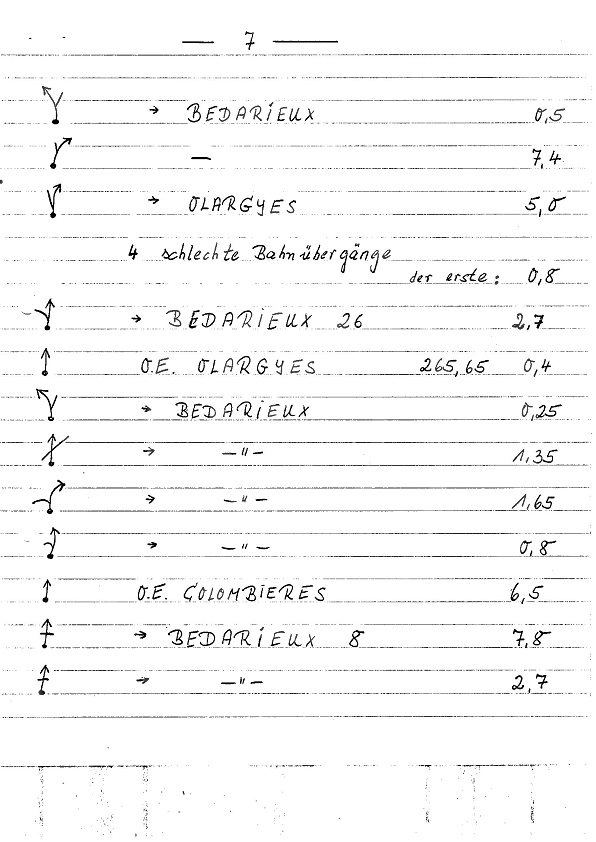 — 7 —
→ BEDARIEUX 0,5
— 7,4
→ OLARGYES 5,0
4 schlechte Bahnübergänge
der erste: 0,8
→ BEDARIEUX 26 2,7
O.E. OLARGYES 265,65 0,4
→ BEDARIEUX 0,25
→ —"— 1,35
→ —"— 1,65
→ —"— 0,8
O.E. COLOMBIERES 6,5
→ BEDARIEUX 8 7,8
→ —"— 2,7